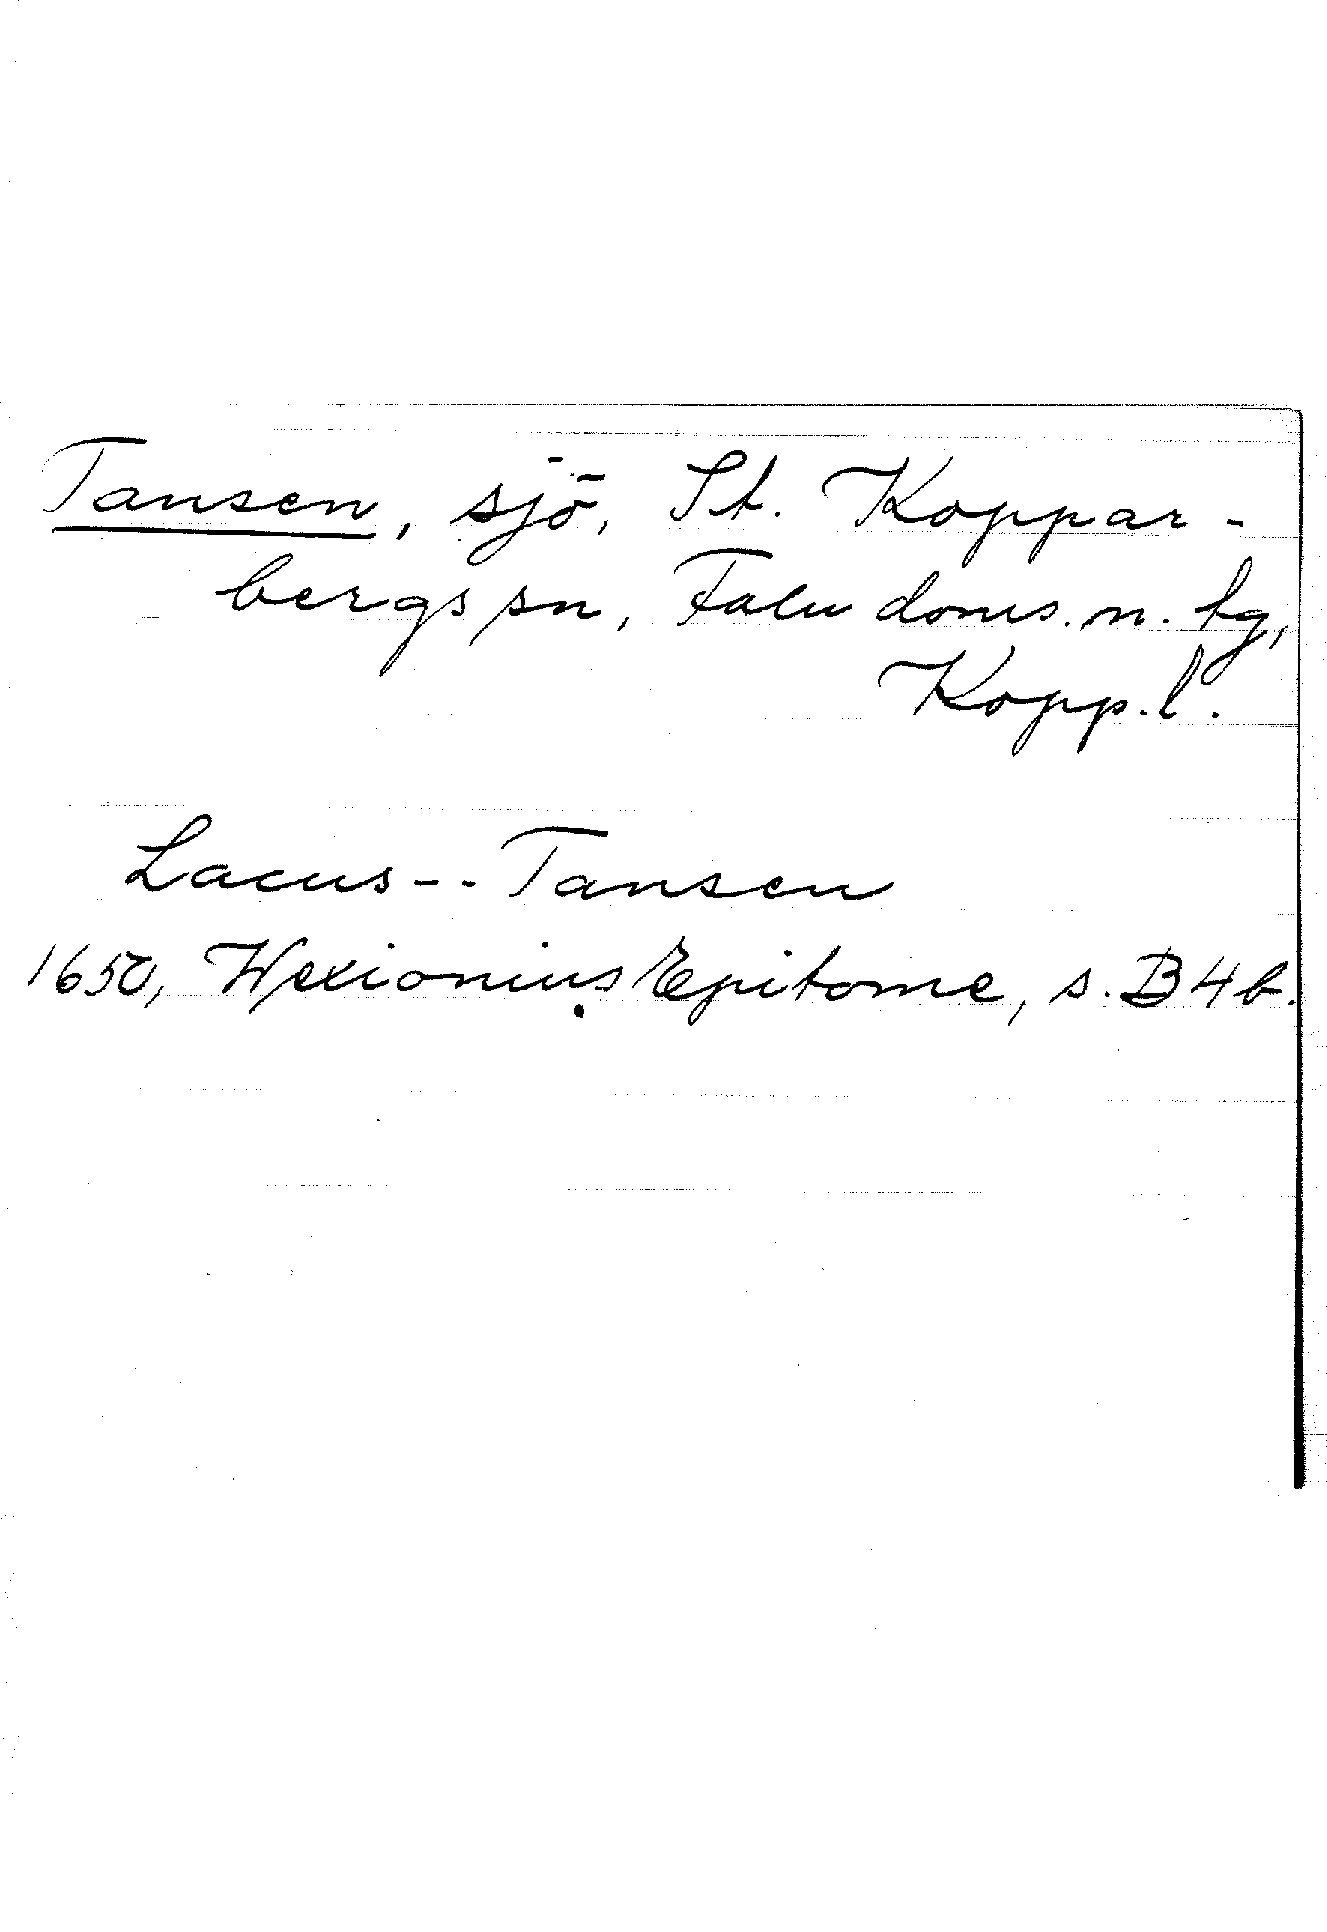 Tansen, sjö, St. Koppar-
bergs sn, Falu doms. n. tg,
Kopp. l.
Lacus -- Tansen
1650, Wexionius Epitome, s. B4b.